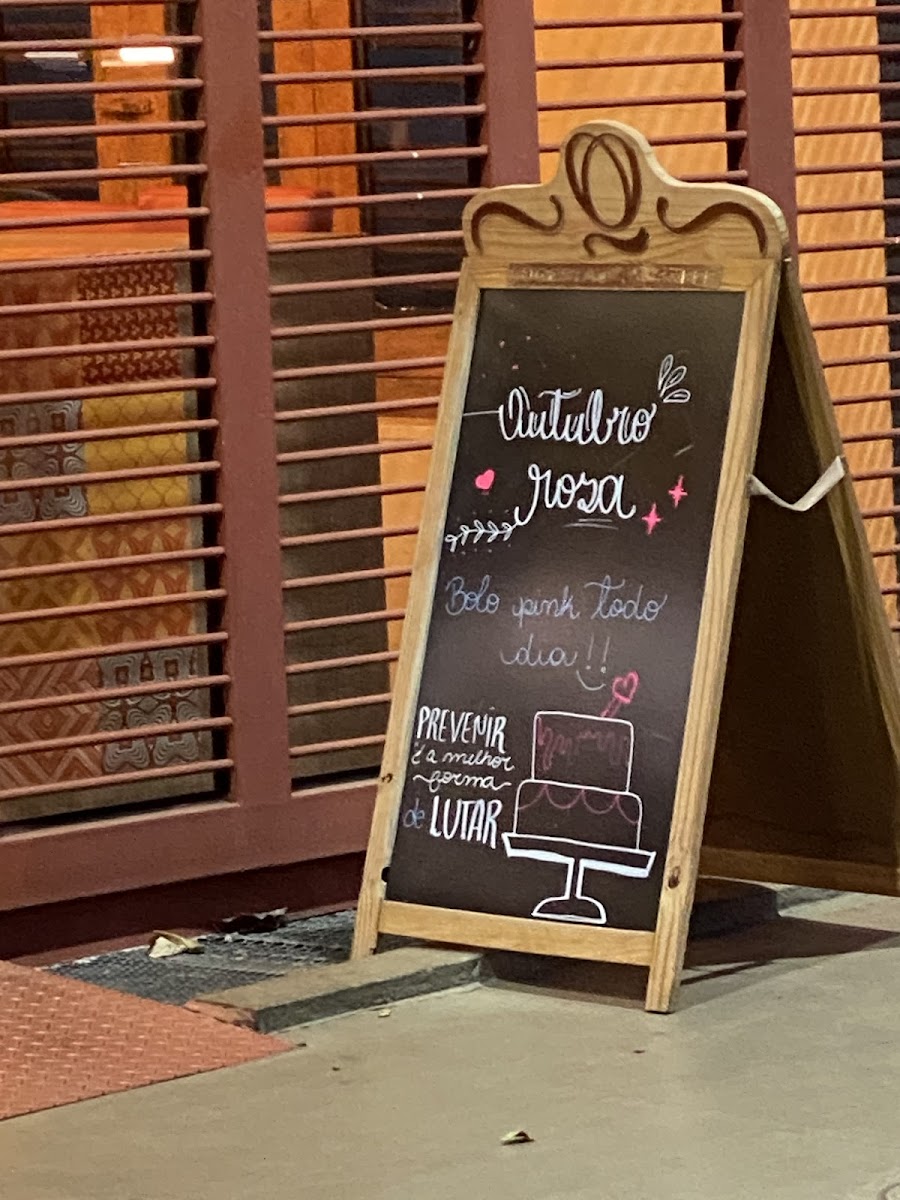 Q
Outubro
rosa
Bolo pink todo
dia!!
PREVENIR
é a melhor
forma
de LUTAR